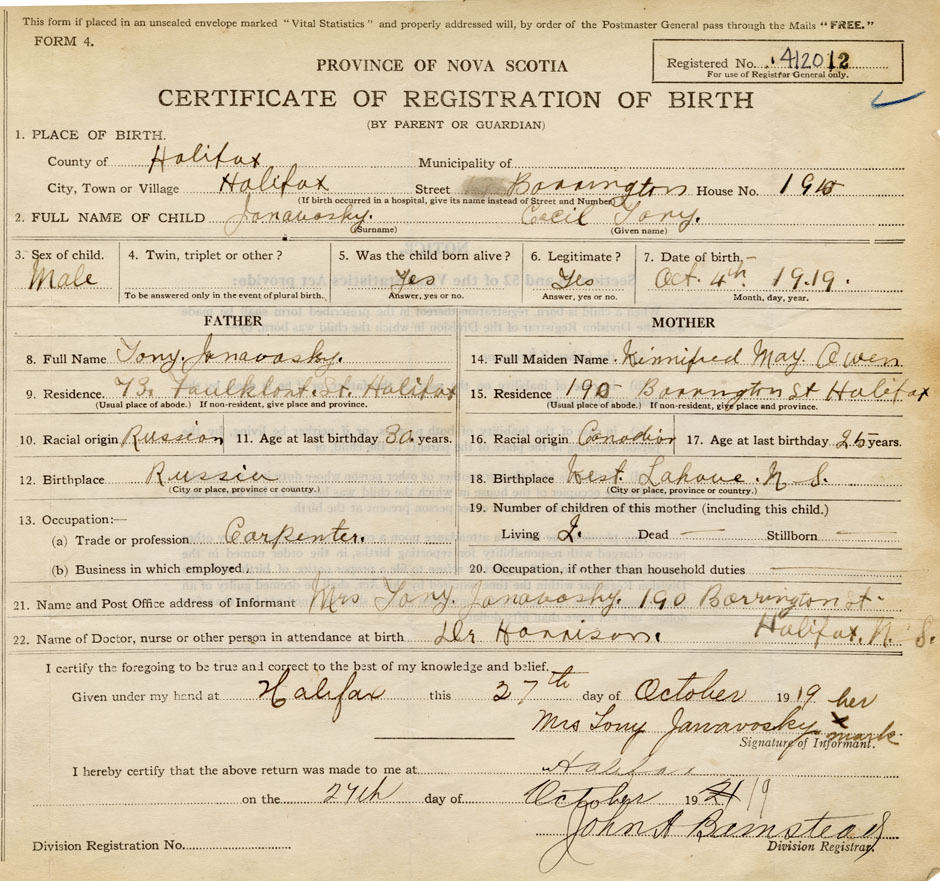 This form if placed in an unsealed envelope marked "Vital Statistics" and properly addressed will, by order of the Postmaster General pass through the Mails "FREE."
FORM 4.
Registered No. 412012
For use of Registrar General only.
PROVINCE OF NOVA SCOTIA
CERTIFICATE OF REGISTRATION OF BIRTH
(BY PARENT OR GUARDIAN)
1. PLACE OF BIRTH.
County of Halifax Municipality of
City, Town or Village Halifax Street Barrington House No. 190
(If birth occurred in a hospital, give its name instead of Street and Number)
2. FULL NAME OF CHILD Janavosky. Cecil Tony.
(Surname) (Given name)
3. Sex of child. 4. Twin, triplet or other? 5. Was the child born alive? 6. Legitimate? 7. Date of birth,
Male Yes Yes Oct. 4th 1919.
To be answered only in the event of plural birth. Answer, yes or no. Answer, yes or no. Month, day, year.
FATHER MOTHER
8. Full Name Tony. Janavosky. 14. Full Maiden Name Winnifred May Owen
9. Residence. 73. St. Halifax 15. Residence 190 Barrington St Halifax
(Usual place of abode.) If non-resident, give place and province. (Usual place of abode.) If non-resident, give place and province.
10. Racial origin Russian 11. Age at last birthday 30 years. 16. Racial origin Canadian 17. Age at last birthday 25 years.
12. Birthplace Russia 18. Birthplace West. Lahave. N S.
(City or place, province or country.) (City or place, province or country.)
13. Occupation:— 19. Number of children of this mother (including this child.)
(a) Trade or profession Carpenter. Living Dead — Stillborn —
(b) Business in which employed 20. Occupation, if other than household duties —
21. Name and Post Office address of Informant Mrs Tony. Janavosky. 190 Barrington st.
Halifax. N. S.
22. Name of Doctor, nurse or other person in attendance at birth Dr Harrison.
I certify the foregoing to be true and correct to the best of my knowledge and belief.
Given under my hand at Halifax this 27th day of October 1919
her
Mrs Tony Janavosky x
mark
Signature of Informant.
I hereby certify that the above return was made to me at Halifax
on the 27th day of October 19 19
John A Barnstead
Division Registration No. Division Registrar.